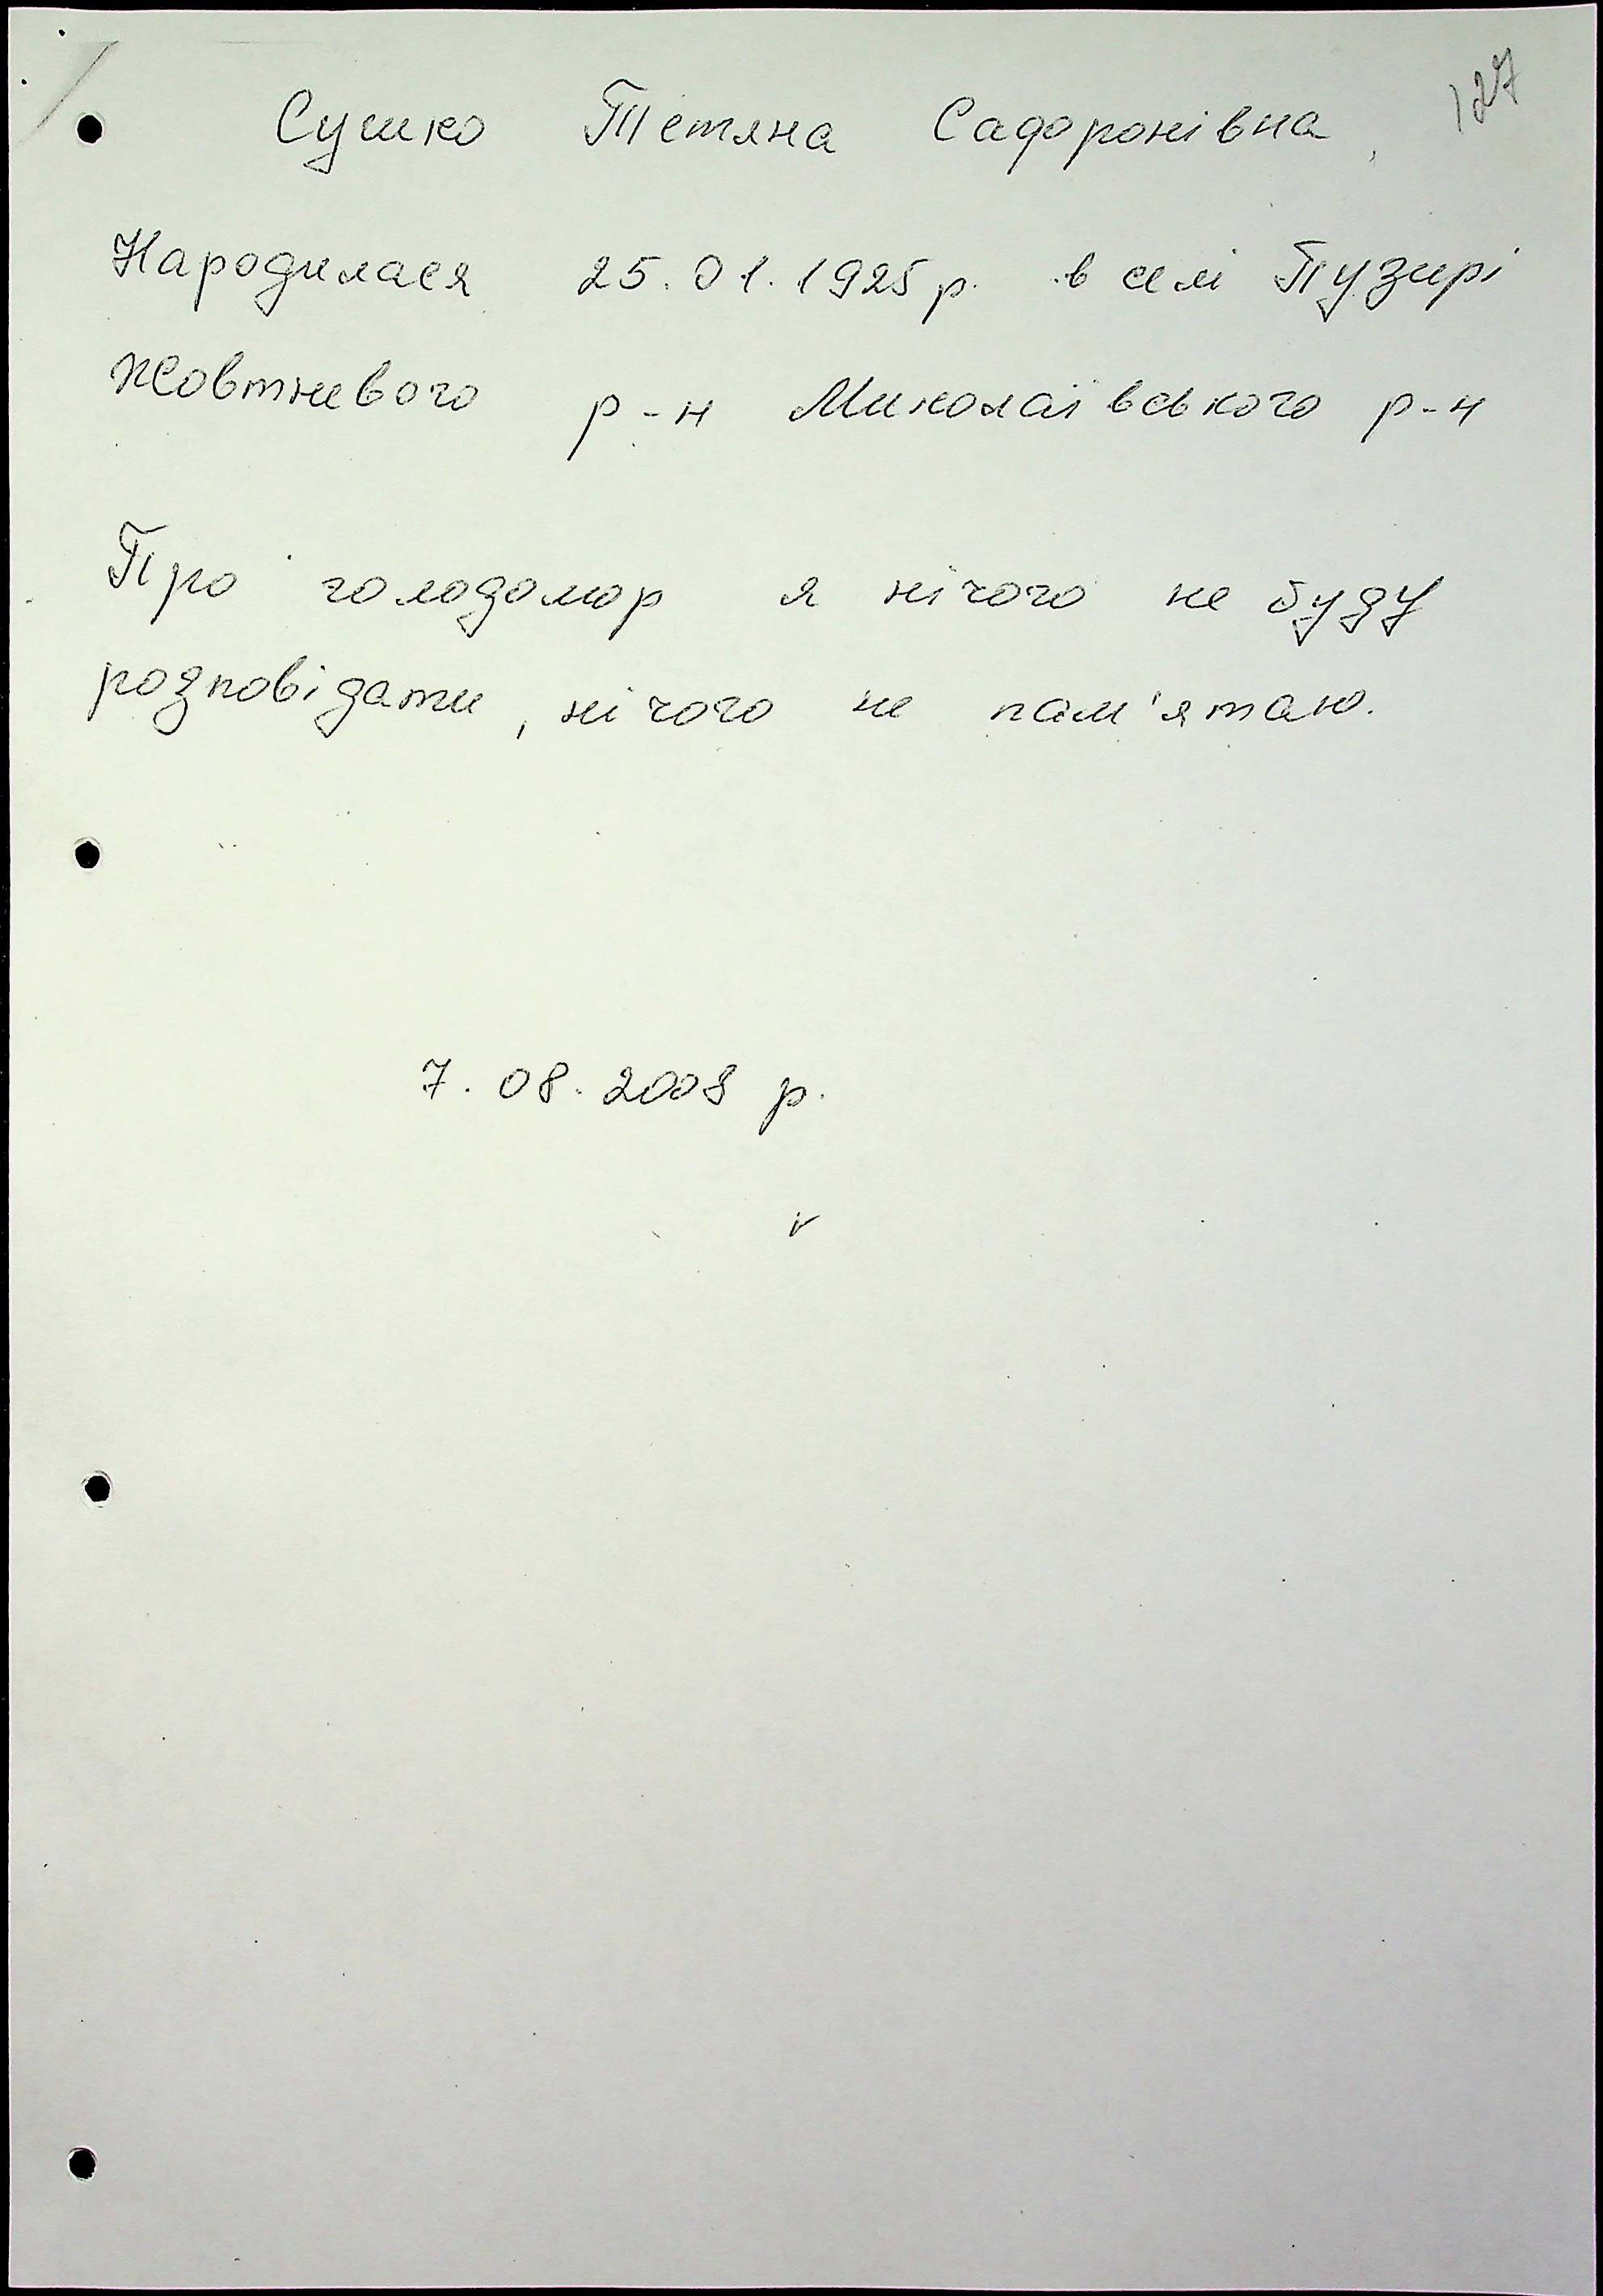 127
Сушко Тетяна Садоронівна,
Народилася 25.01.1925 р. в селі Пузирі
Жовтневого р-н Миколаївського р-н
Про голодомор я нічого не буду
розповідати, нічого не пам'ятаю.
7.08.2008 р.